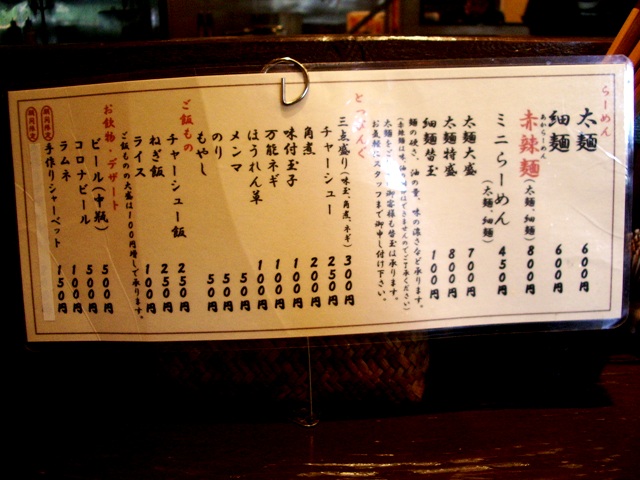 らーめん
太麺 600円
細麺 600円
あからーめん
赤辣麺(太麺、細麺) 800円
ミニらーめん(太麺、細麺) 450円
太麺大盛 700円
太麺特盛 800円
細麺替玉 100円
麺の硬さ、油の量、味の濃さなど承ります。
(赤辣麺は味、油の できませんのでご了承ください)
太麺を のお客様も替玉は承ります。
お気軽にスタッフまで御申し付け下さい。
とっぴんぐ
三点盛り(味玉、角煮、ネギ) 300円
チャーシュー 250円
角煮 200円
味付玉子 100円
万能ネギ 100円
ほうれん草 100円
メンマ 50円
のり 50円
もやし 50円
ご飯もの
チャーシュー飯 250円
ねぎ飯 250円
ライス 100円
ご飯もの大盛は100円増しで承ります。
お飲物・デザート
ビール(中瓶) 500円
コロナビール 500円
ラムネ 100円
手作りシャーベット 150円